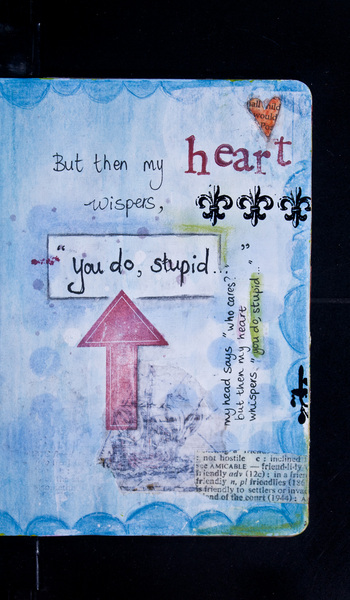 But then my heart
wispers,
"you do, stupid..."
my head says "who cares?"
but then my heart
whispers. "you do, stupid..."
: not hostile
: inclined
see AMICABLE — friend·li·ly
friendly adv (12c) : in a
friendly n, pl friendlies
is friendly to settlers or
nd of the court (1944) : A